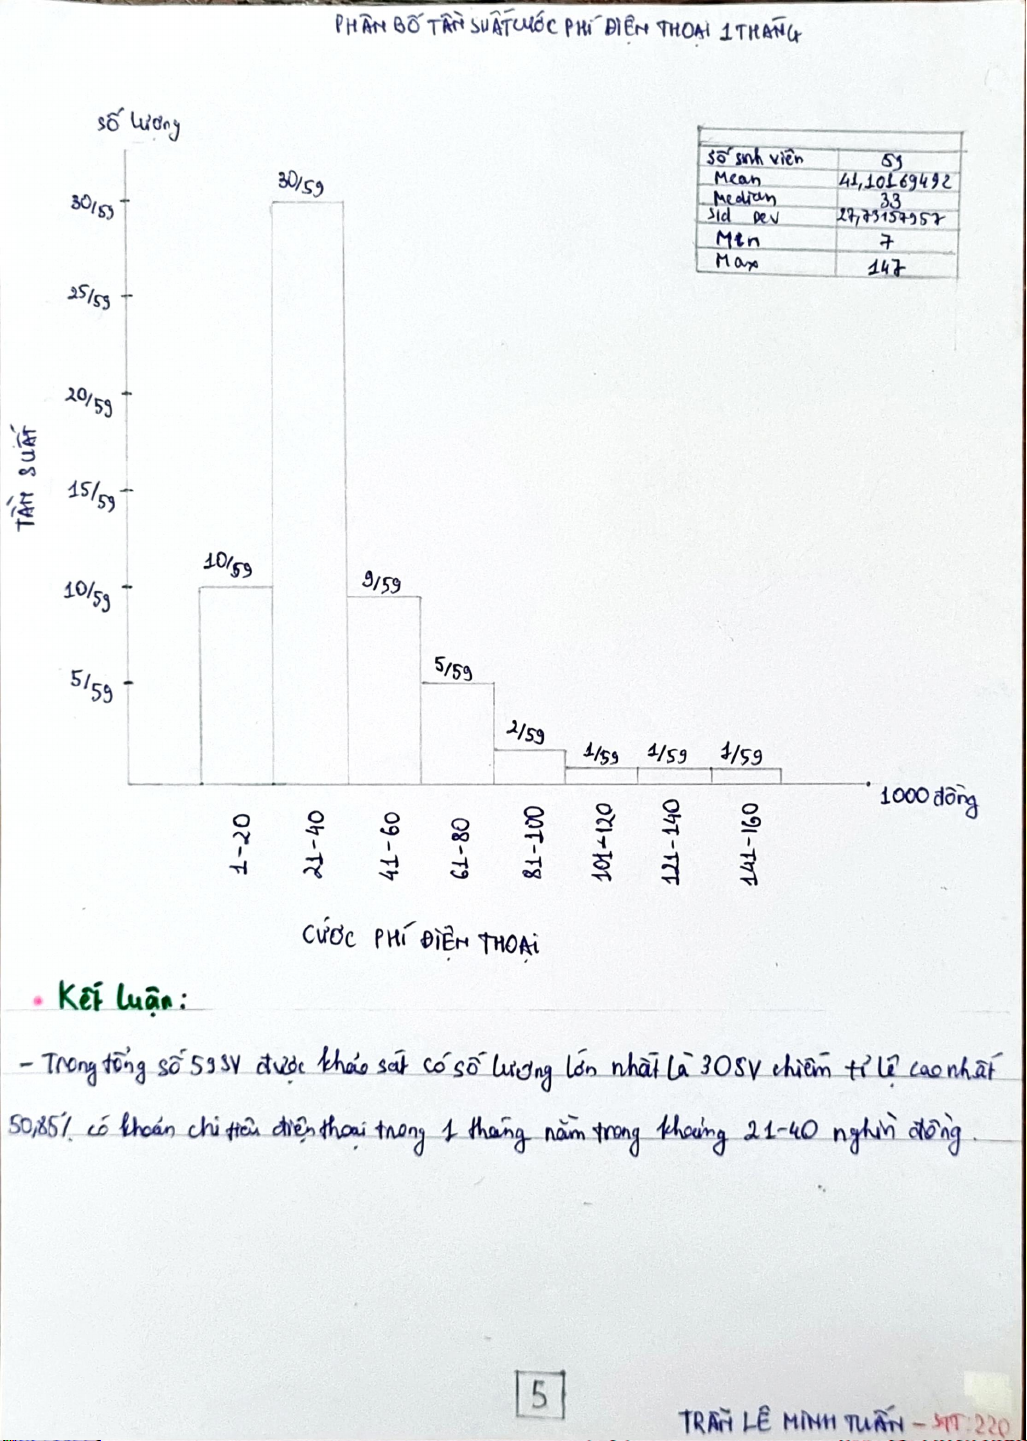 PHÂN BỐ TẦN SUẤT CƯỚC PHÍ ĐIỆN THOẠI 1 THÁNG
Số lượng
Số sinh viên 59
Mean 41,10169492
Median 33
Std Dev 27,73157957
Min 7
Max 147
TẦN SUẤT
30/59
25/59
20/59
15/59
10/59
5/59
10/59
30/59
9/59
5/59
2/59
1/59
1/59
1/59
1000 đồng
1-20
21-40
41-60
61-80
81-100
101-120
121-140
141-160
CƯỚC PHÍ ĐIỆN THOẠI
• Kết luận:
- Trong tổng số 59 SV được khảo sát có số lượng lớn nhất là 30 SV chiếm tỉ lệ cao nhất
50,85% có khoản chi tiêu điện thoại trong 1 tháng nằm trong khoảng 21-40 nghìn đồng.
5
TRẦN LÊ MINH TUẤN - STT: 220